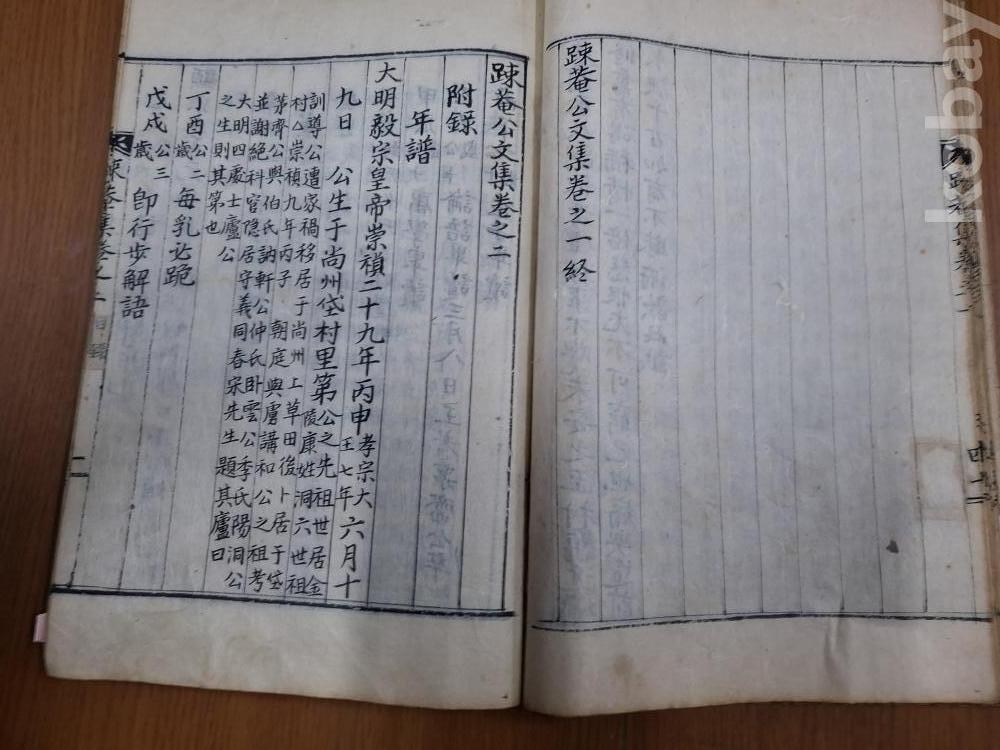 踈菴公文集卷之一終
踈菴公文集卷之二
附錄
年譜
大明毅宗皇帝崇禎二十九年丙申孝宗大王七年六月十
九日 公生于尚州垈村里第公之先祖世居金陵康姓洞六世祖
訓導公遭家禍移居于尚州上草田後卜居于垈
村崇禎九年丙子 朝庭與虜講和公之祖考
茅齊公與伯氏訥軒公仲氏卧雲公季氏陽洞公
並謝絕科官隐居守義同春宋先生題其廬曰
大明四處士廬公
之生則其第也
丁酉公二歲每乳必跪
戊戌公三歲卽行步解語
kobay